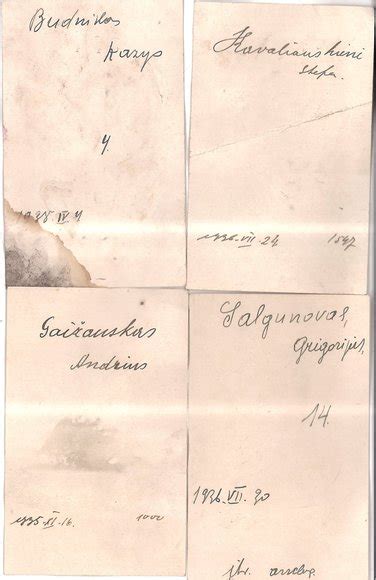 Budnikas
Kazys
4.
1938.IV.4
Kavaliauskienė
Stefa.
1936.VII.24 1547
Gaižauskas
Andrius
1935.XI.16. 1000
Salgunovas,
Grigorijus,
14.
1936.VII.30